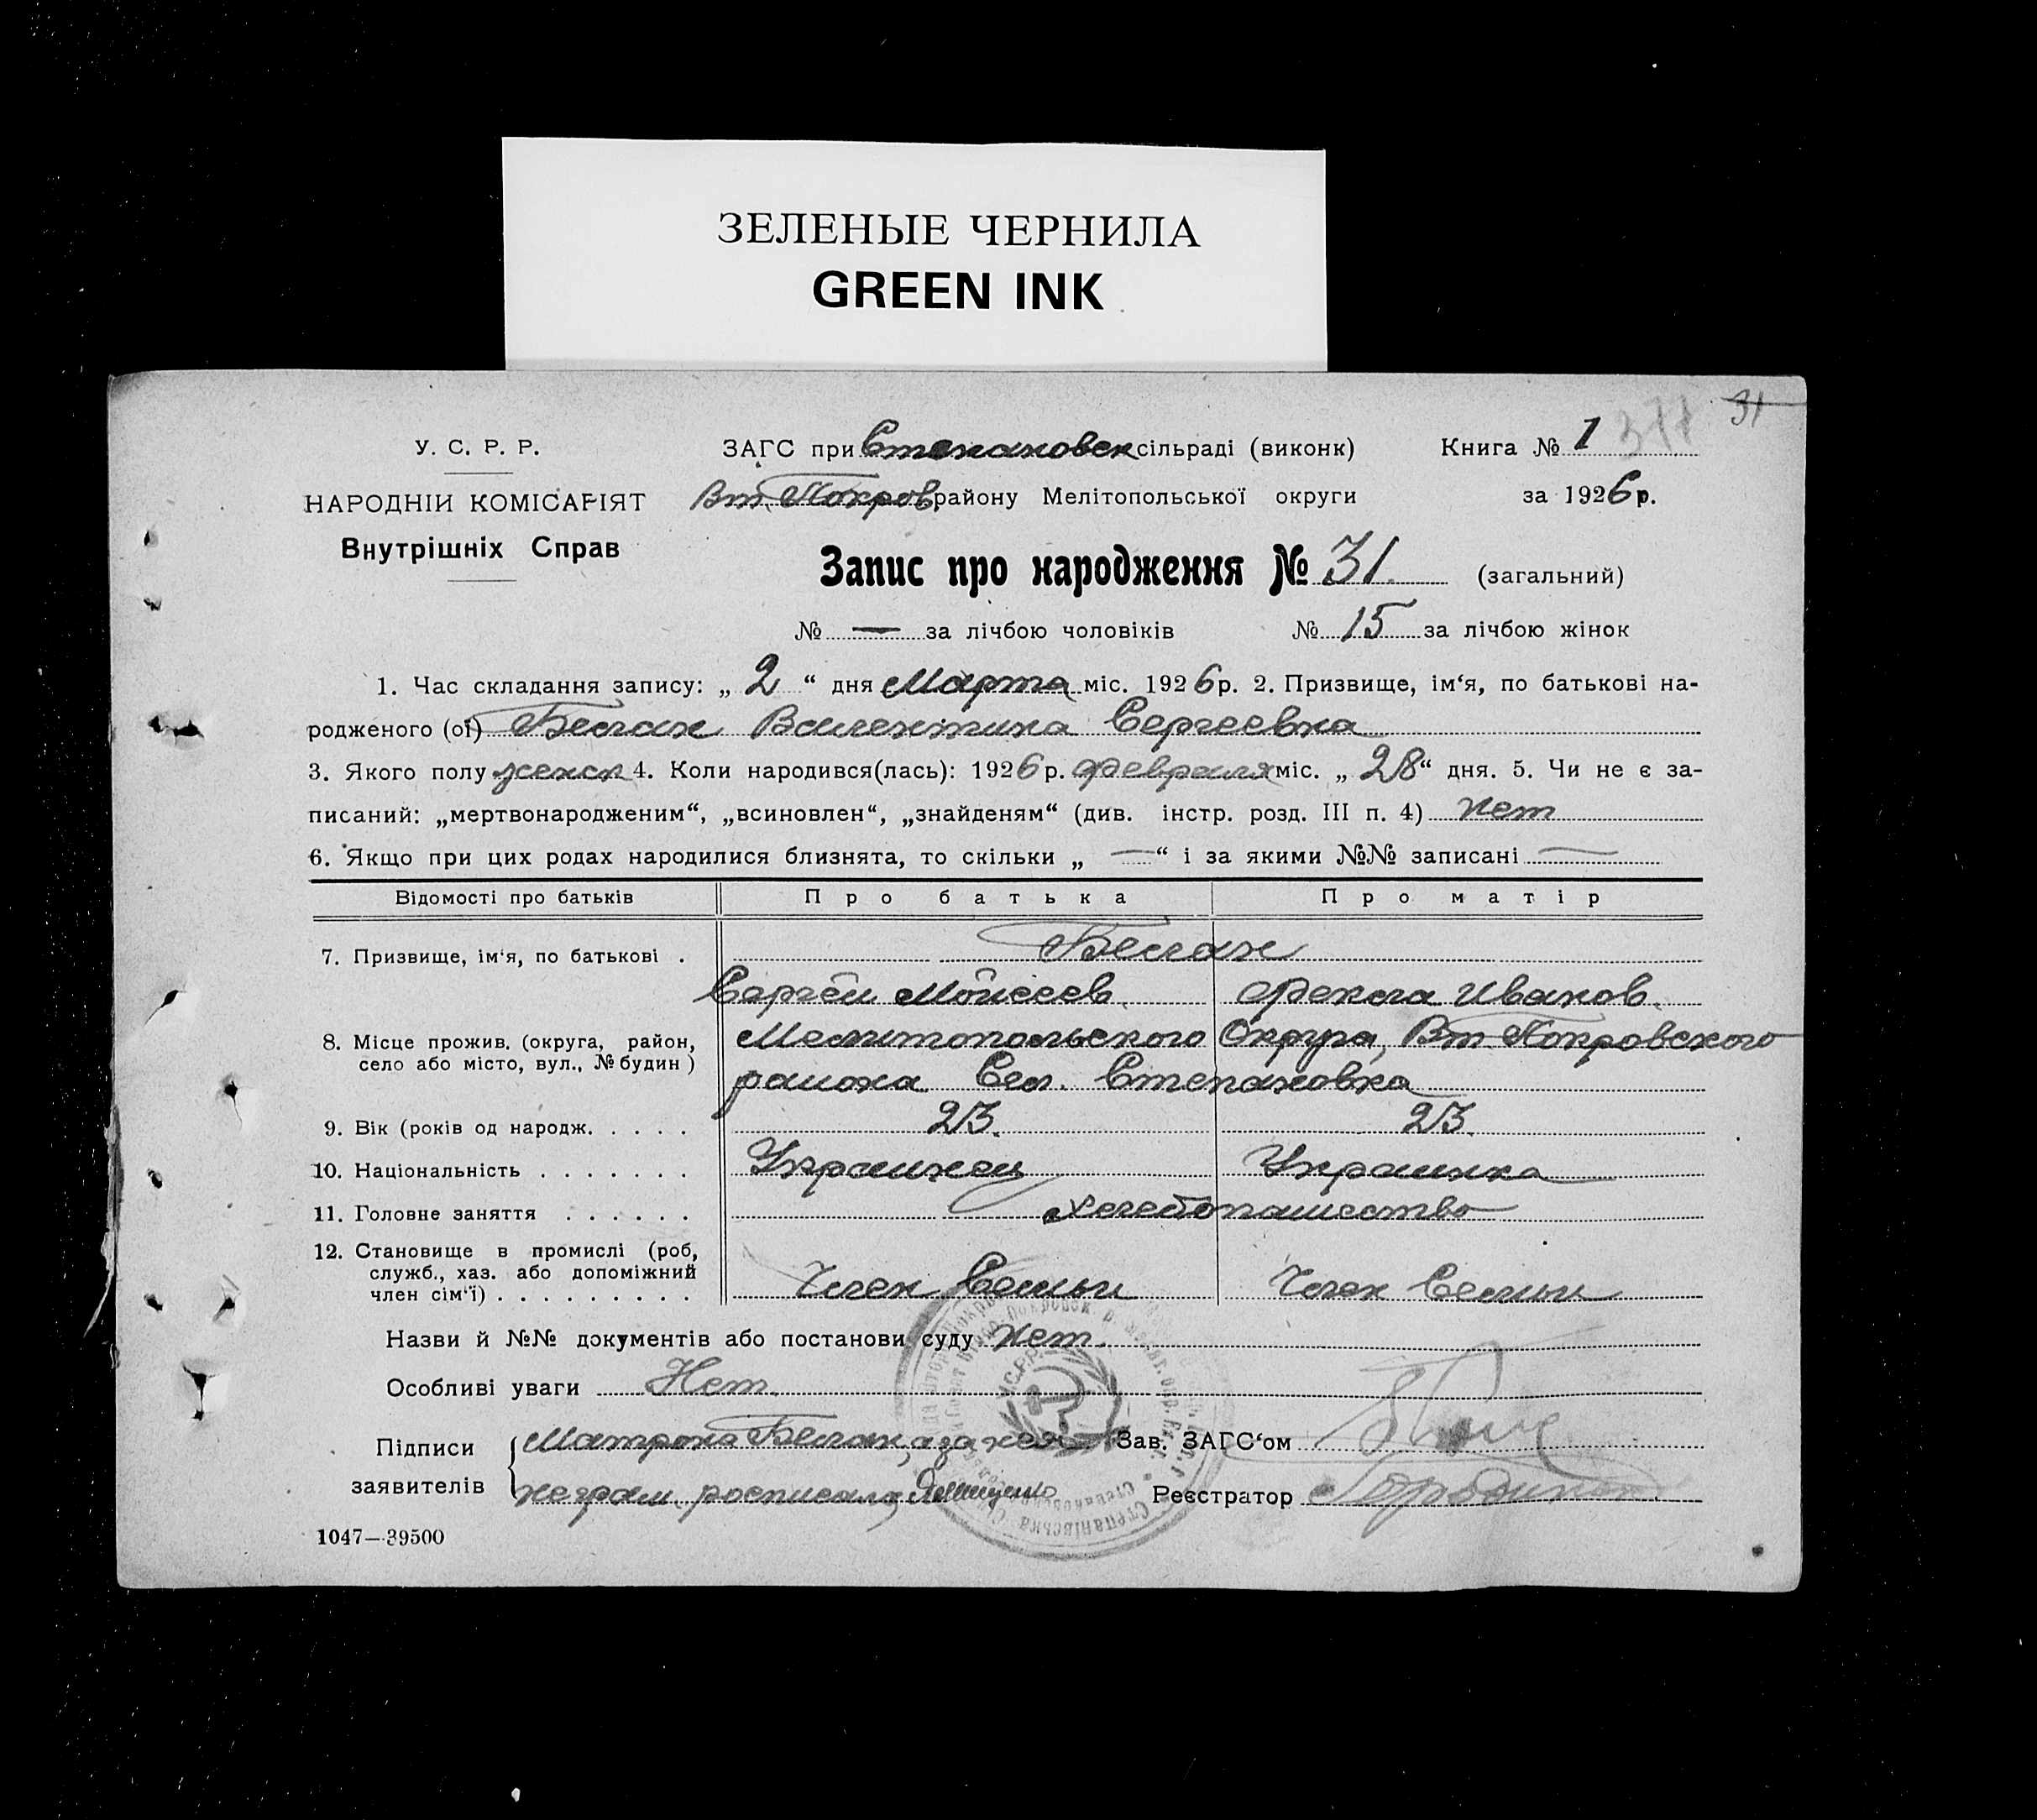 ЗЕЛЕНЫЕ ЧЕРНИЛА
GREEN INK
31
У. С. Р. Р.
ЗАГС при Степановск сільраді (виконк)
Книга № 1 377
НАРОДНІЙ КОМІСАРІЯТ
Вт. Покров. району Мелітопольської округи
за 1926 р.
Внутрішніх Справ
Запис про народження № 31. (загальний)
№ — за лічбою чоловіків № 15 за лічбою жінок
1. Час складання запису: „ 2 “ дня Марта міс. 1926 р. 2. Призвище, ім‘я, по батькові на-
родженого (ої) Белан Валентина Сергеевна
3. Якого полу женск 4. Коли народився(лась): 1926 р. февраля міс. „ 28 “ дня. 5. Чи не є за-
писаний: „мертвонародженим“, „всиновлен“, „знайденям“ (див. інстр. розд. III п. 4) нет
6. Якщо при цих родах народилися близнята, то скільки „ — “ і за якими №№ записані —
Відомості про батьків Про батька Про матір
7. Призвище, ім‘я, по батькові . Белан
Сергей Мойсеев. Фекла Иванов.
8. Місце прожив. (округа, район, село або місто, вул., № будин) Мелитопольского Округа, Вт. Покровского
района Сел. Степановка
9. Вік (років од народж. . . . . 23. 23.
10. Національність . . . . . . . Украинец Украинка
11. Головне заняття . . . . . . Хлебопашество
12. Становище в промислі (роб,
служб., хаз. або допоміжний
член сім‘ї) . . . . . . . . . Член Семьи Член Семьи
Назви й №№ документів або постанови суду нет.
Особливі уваги Нет.
У.С.Р.Р.
Підписи Матрона Белан, а за нея Зав. ЗАГС‘ом
заявителів неграм. росписал Реєстратор
1047—39500